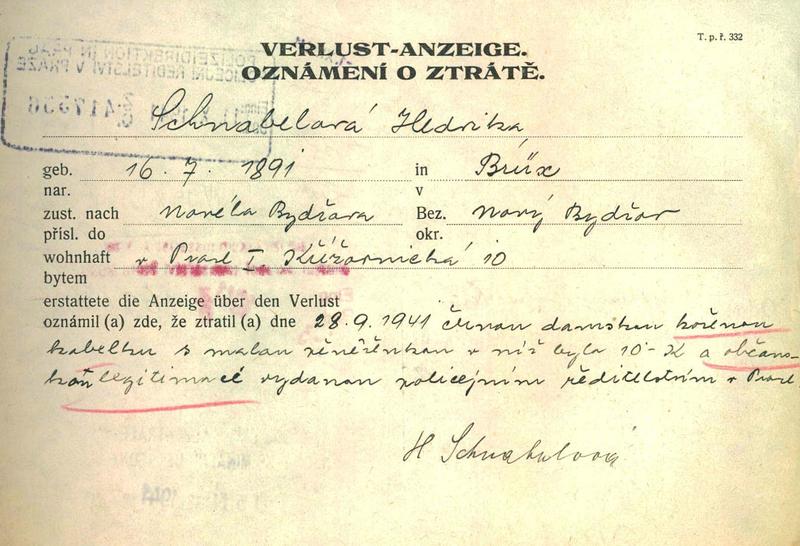 T. p. ř. 332
VERLUST-ANZEIGE.
OZNÁMENÍ O ZTRÁTĚ.
POLIZEIDIREKTION IN PRAG
POLICEJNÍ ŘEDITELSTVÍ V PRAZE
Schnabelová Hedvika
geb. 16. 7. 1891 in Brüx
nar. v
zust. nach Nového Bydžova Bez. Nový Bydžov
přísl. do okr.
wohnhaft v Praze I. Křižovnická 10
bytem
erstattete die Anzeige über den Verlust
oznámil (a) zde, že ztratil (a) dne 28.9.1941 černou damskou koženou
kabelku s malou peněženkou v níž bylo 10-K a občans-
kou legitimaci vydanou policejním ředitelstvím v Praze
H Schnabelová